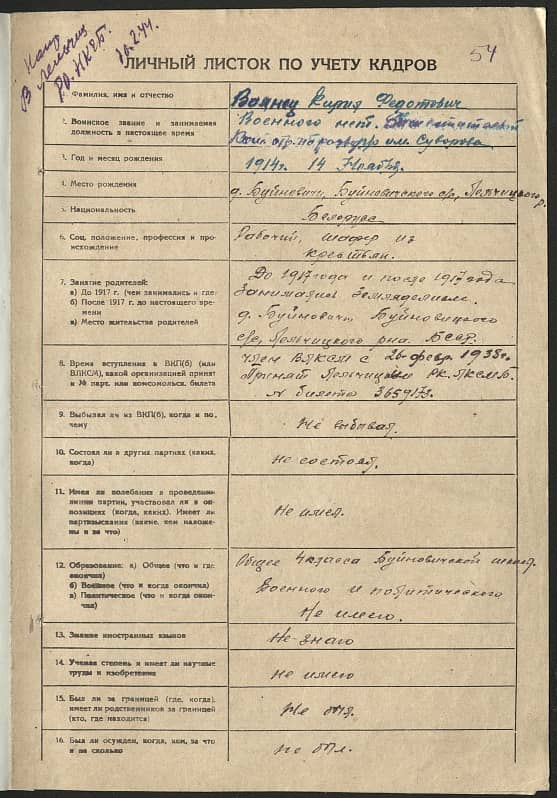 54
16.2.44.
ЛИЧНЫЙ ЛИСТОК ПО УЧЕТУ КАДРОВ
1. Фамилия, имя и отчество
Федотович
2. Воинское звание и занимаемая
должность в настоящее время
Военного
им. Суворова
3. Год и месяц рождения
1914г. 14 Ноября.
4. Место рождения
д. Буйновичи, Буйновичского с/с,
5. Национальность
Белорус
6. Соц. положение, профессия и про-
исхождение
Рабочий, шофер из
крестьян.
7. Занятие родителей:
а) До 1917 г. (чем занимались и где)
б) После 1917 г. до настоящего вре-
мени
в) Место жительства родителей
До 1917 года и после 1917 года
занимались земледелием.
д. Буйновичи Буйновицкого
с/с, района БССР.
8. Время вступления в ВКП(б) (или
ВЛКСМ), какой организацией принят
и № парт. или комсомольск. билета
член ВЛКСМ с 26 февр. 1938г.
Принят РК. ЛКСМБ.
N билета
9. Выбывал ли из ВКП(б), когда и по-
чему
Не выбывал.
10. Состоял ли в других партиях (каких,
когда)
Не состоял.
11. Имел ли колебания в проведении
линии партии, участвовал ли в оп-
позициях (когда, каких). Имеет ли
партвзыскания (какие, кем наложе-
ны и за что)
Не имел.
12. Образование: а) Общее (что и где
окончил)
б) Военное (что и когда окончил)
в) Политическое (что и когда окон-
чил)
Общее 4 класса Буйновичской школы.
Военного и политического
Не имею.
13. Знание иностранных языков
Не знаю
14. Ученая степень и имеет ли научные
труды и изобретения
Не имею
15. Был ли за границей (где, когда),
имеет ли родственников за границей
(кто, где находится)
Не был.
16. Был ли осужден, когда, кем, за что
и на сколько
не был.